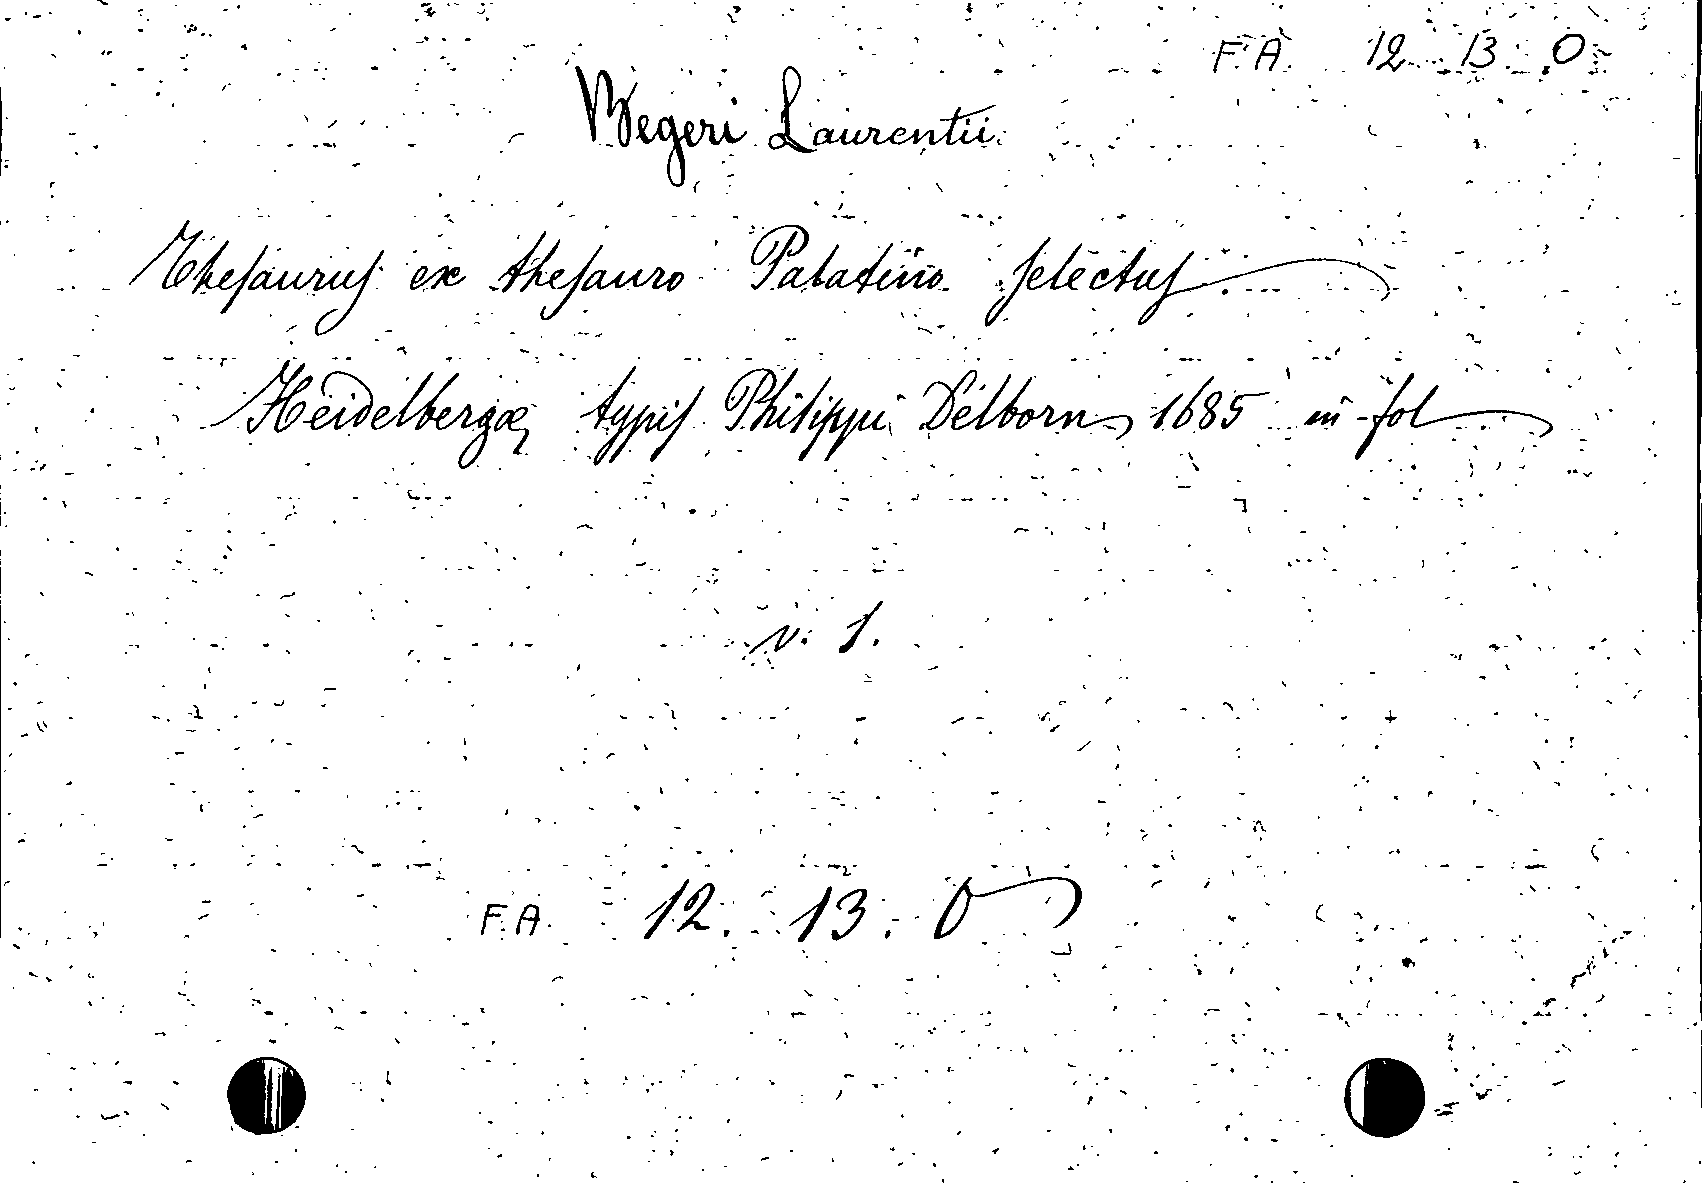 F. A. 12 13 0
Begeri Laurentii
Thesaurus ex thesauro Palatino selectus
Heidelbergæ, typis Philippi Delborn, 1685 in fol
v. 1.
F. A. 12. 13. 0